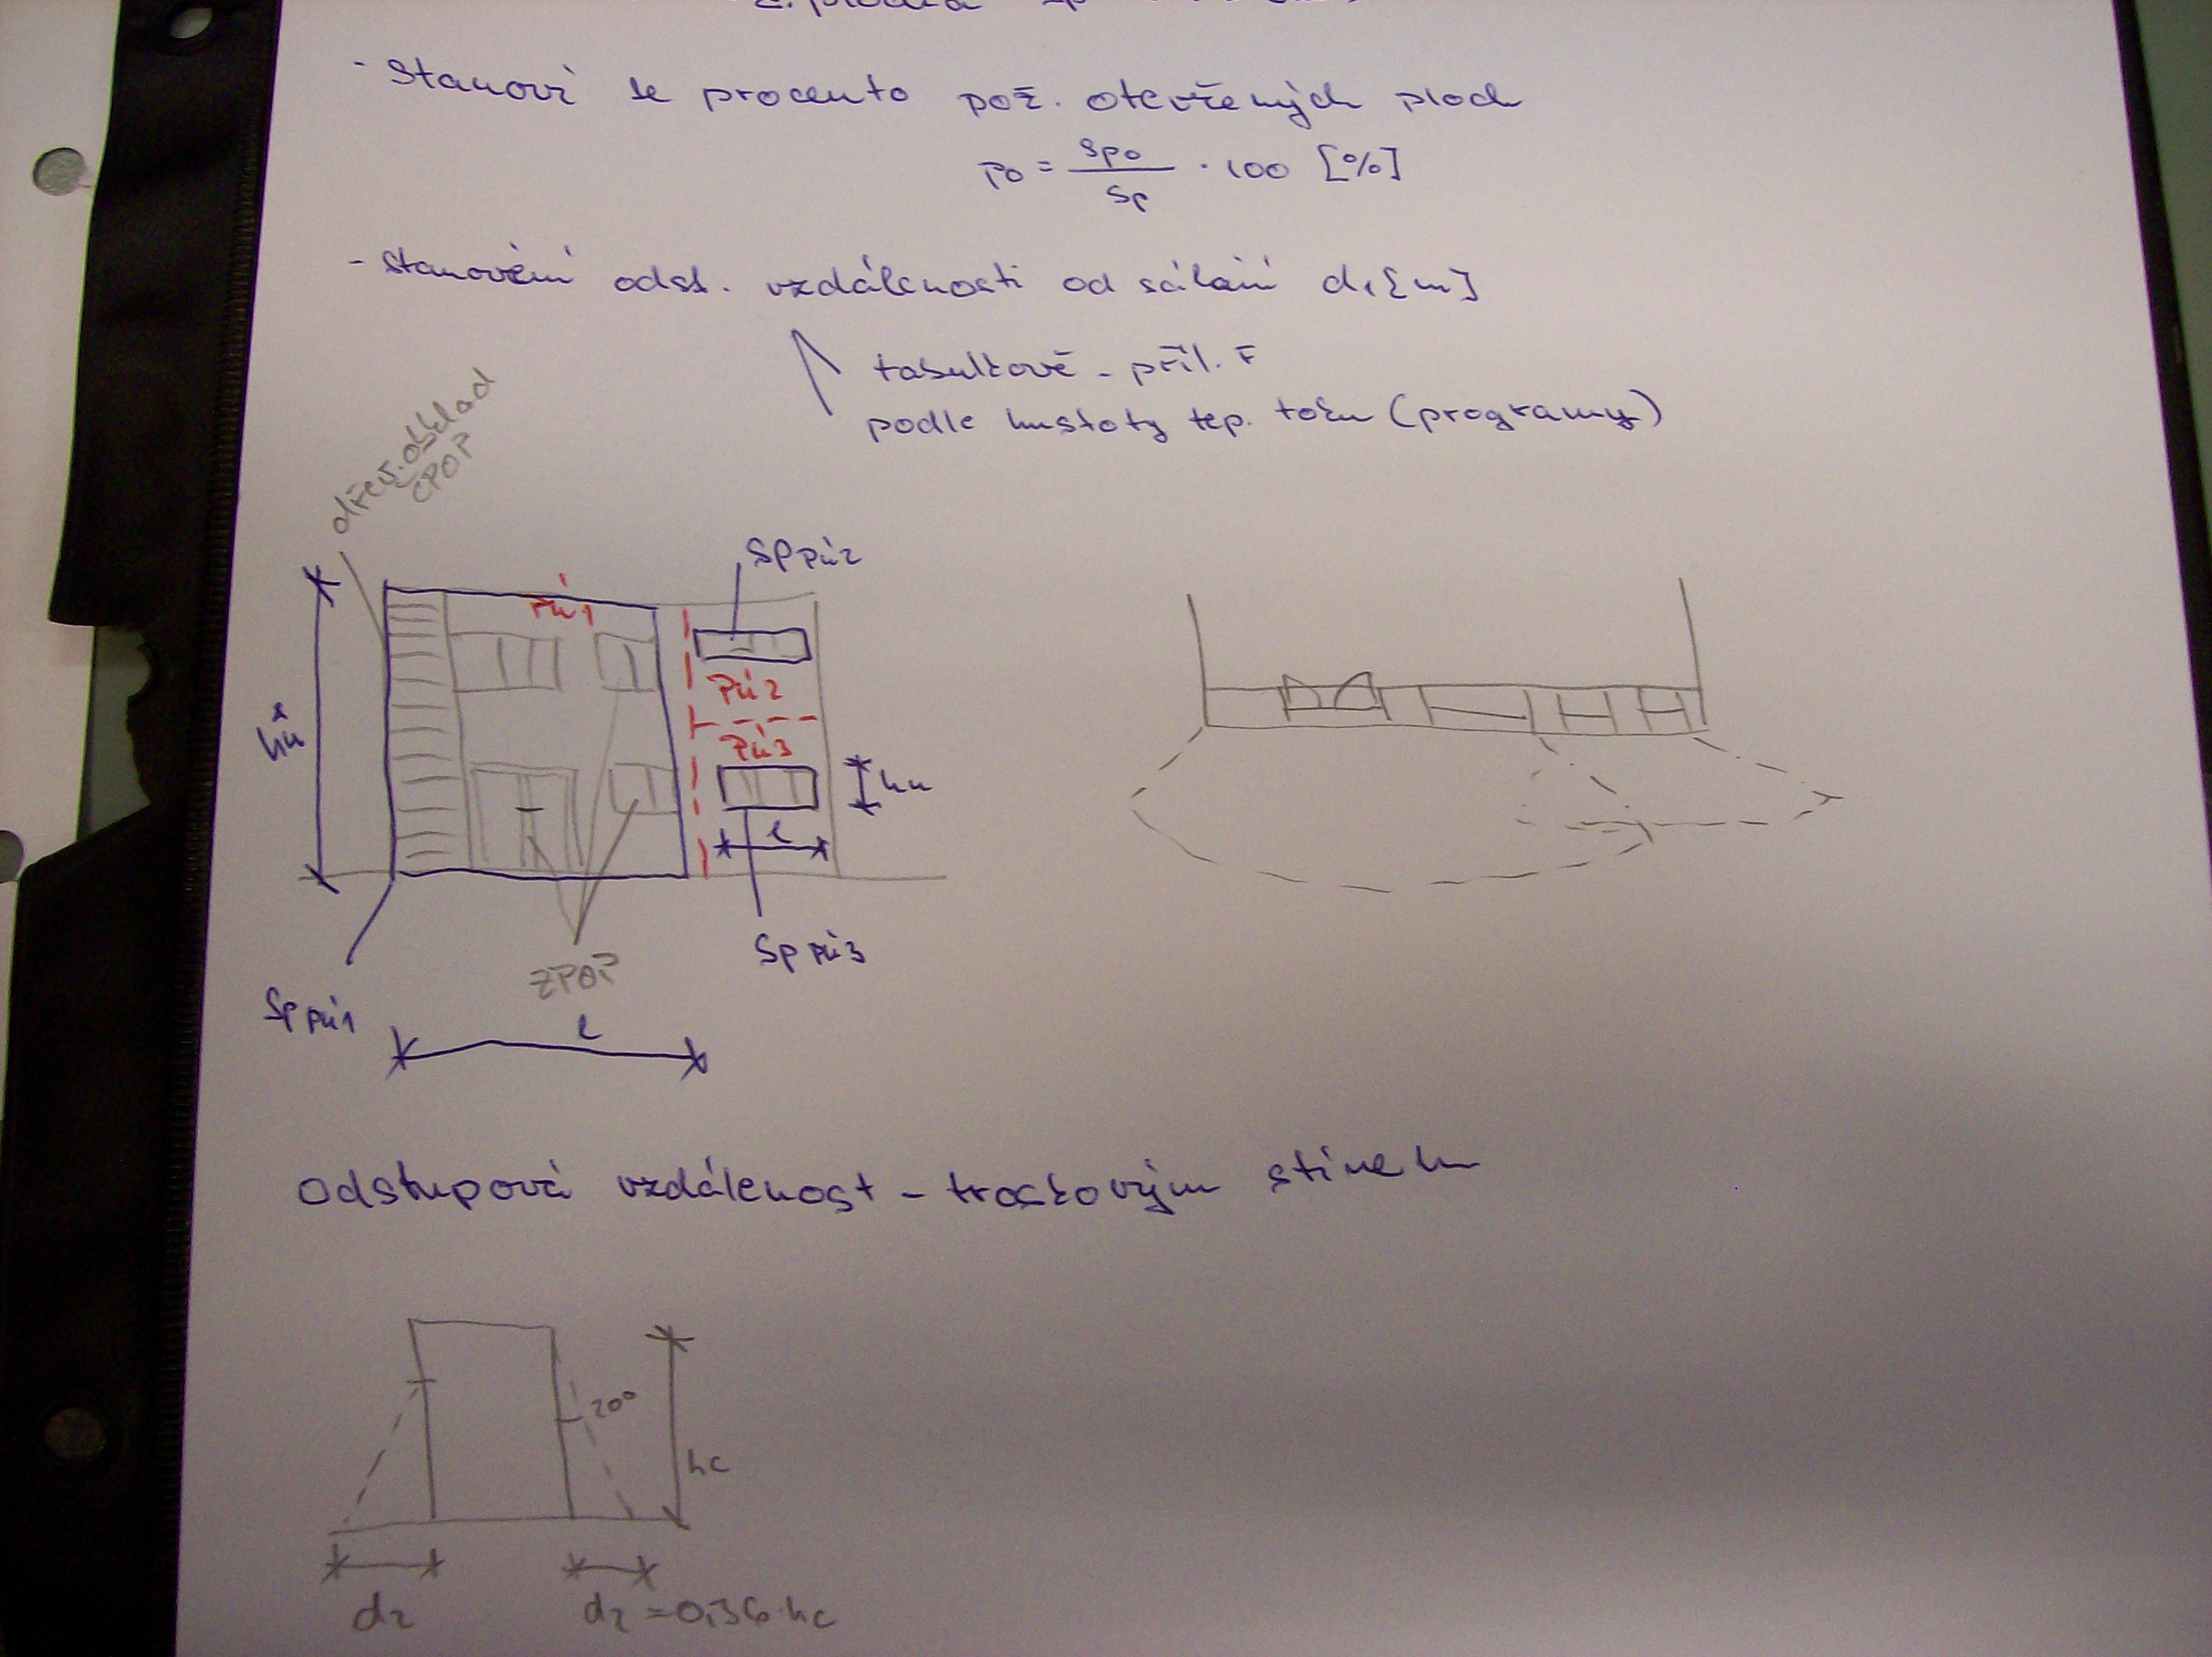 - Stanoví se procento pož. otevřených ploch
po = Spo / Sp · 100 [%]
- stanovení odst. vzdálenosti od sálání d1 [m]
tabulkově - příl. F
podle hustoty tep. toku (programy)
dřev. obklad
ČPOP
Sp PÚ2
PÚ1
PÚ2
PÚ3
hu
hu
l
ZPOP
Sp PÚ3
Sp PÚ1
l
Odstupová vzdálenost - troskovým stínem
20°
hc
d2
d2 = 0,36·hc